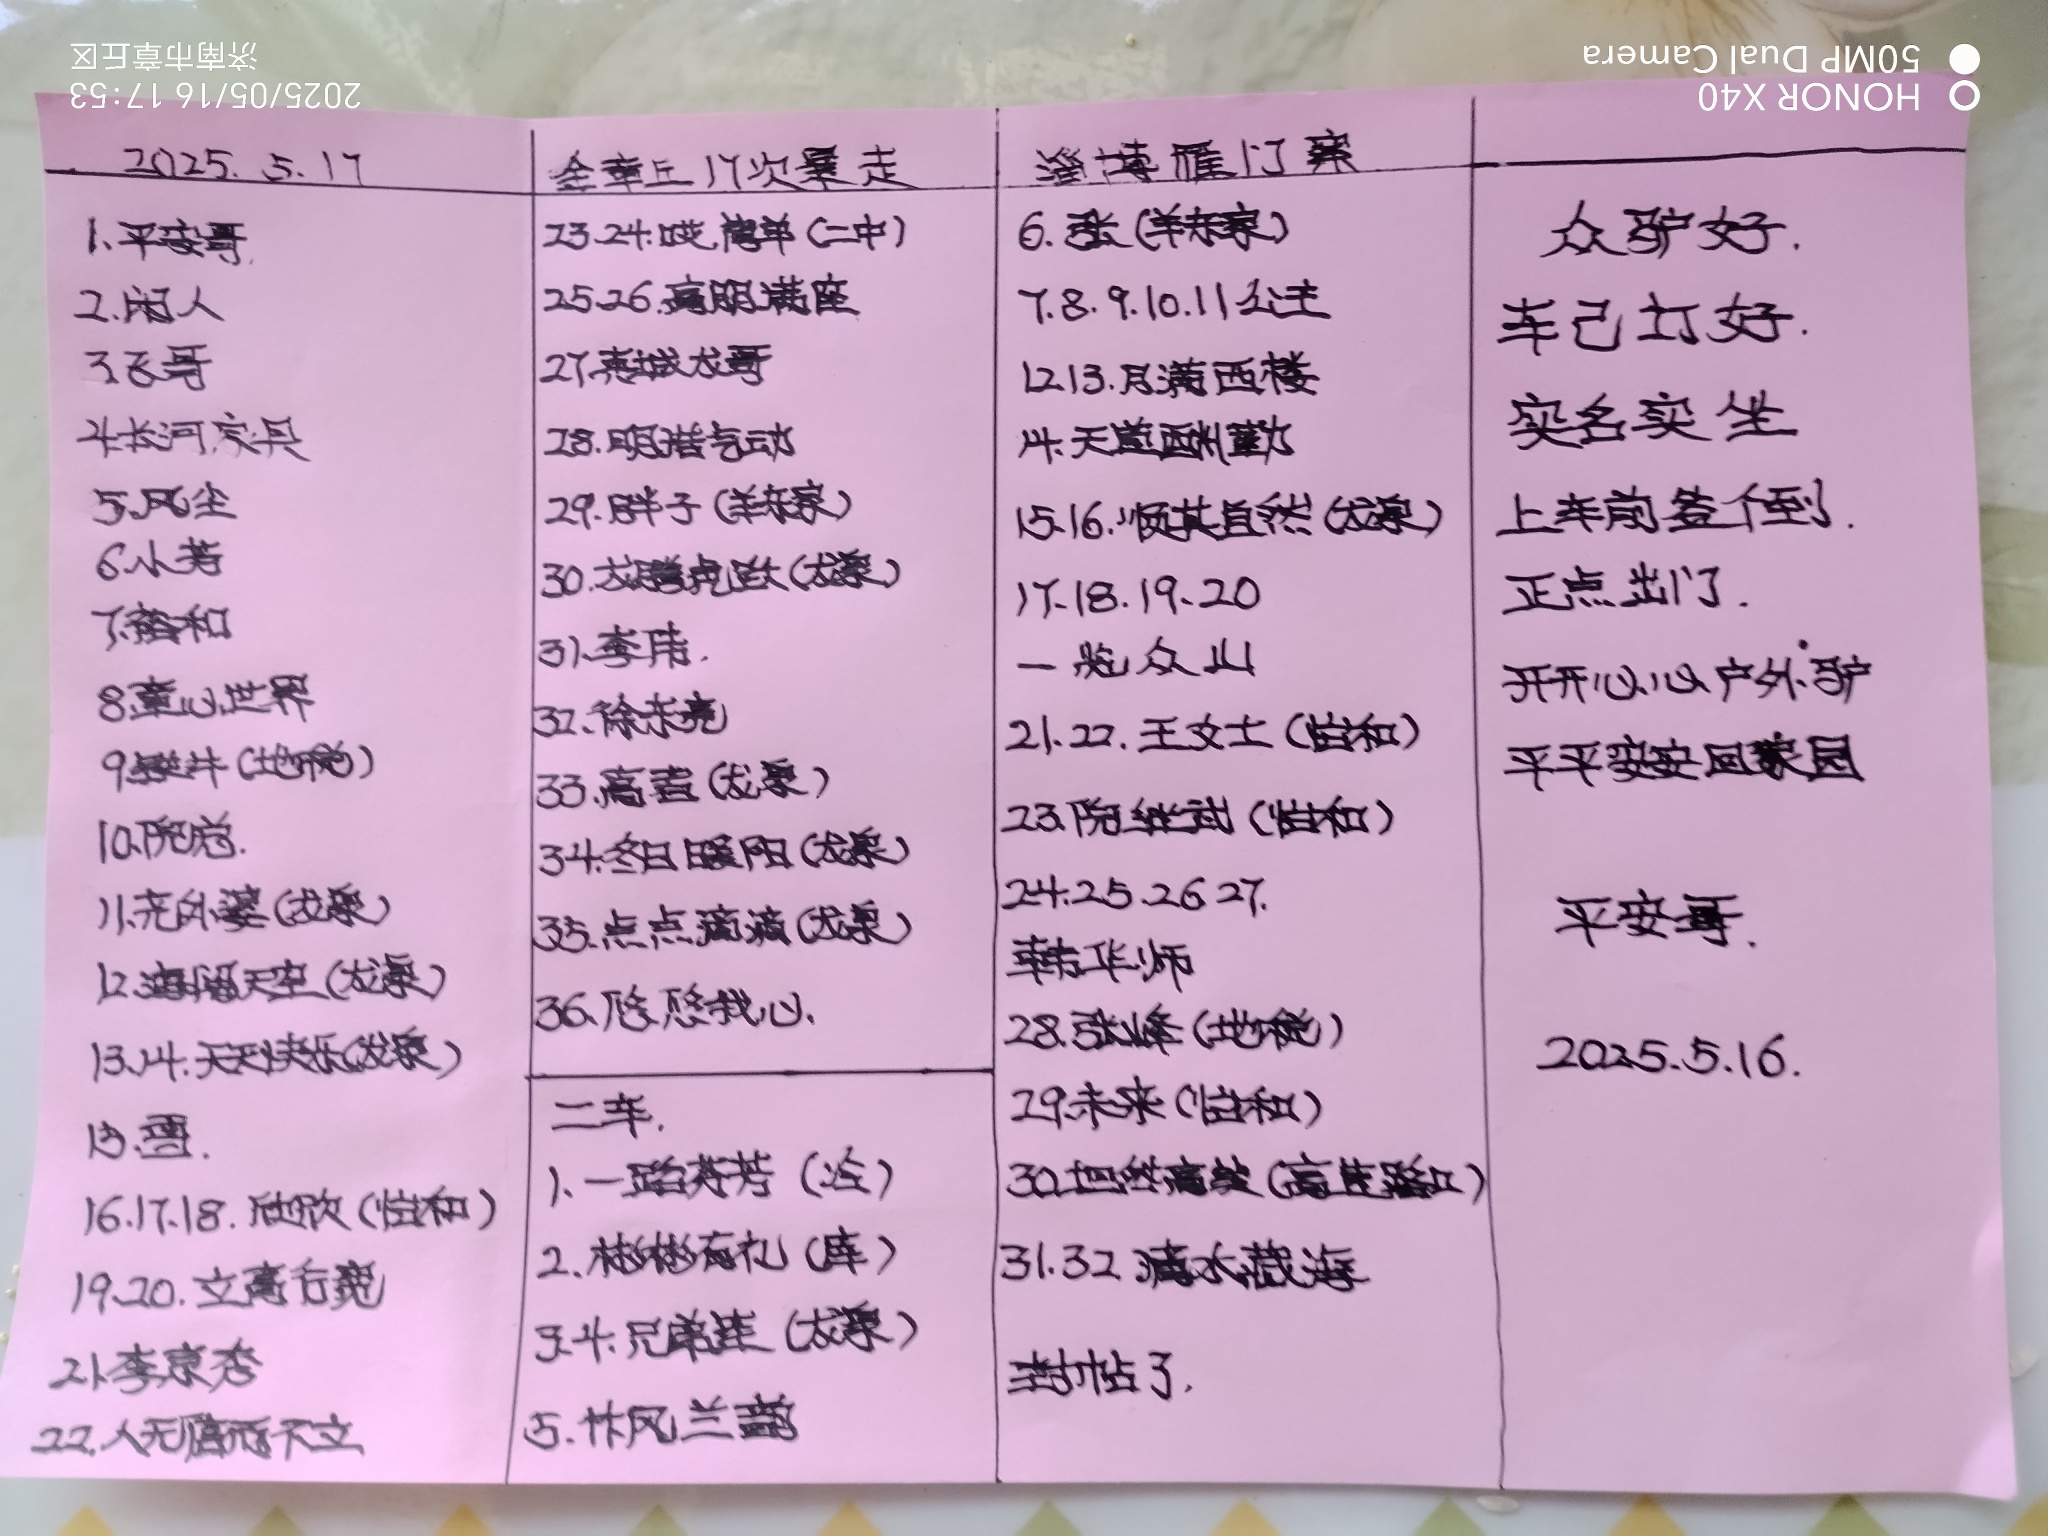 2025.5.17
1.平安哥.
2.闲人
3.飞哥
4.长河.家具
5.风尘
6.小芳
7.裕和
8.童心世界
9.牛(地税)
10.阮总.
11.外婆(龙泉)
12.海阔天空(龙泉)
13.14.天天快乐(龙泉)
15.雪.
16.17.18.欣欣(怡和)
19.20.立高行宽
21.李京杏
22.人无信而不立
全章丘17次暴走
23.24.哎,简单(二中)
25.26.高朋满座
27.城龙哥
28.明浩气动
29.胖子(羊东家)
30.龙腾虎跃(龙泉)
31.李伟.
32.徐东亮
33.高君(龙泉)
34.冬日暖阳(龙泉)
35.点点滴滴(龙泉)
36.悠悠我心.
二车.
1.一路芬芳(泠)
2.彬彬有礼(库)
3.4.兄弟连(龙泉)
5.竹风兰韵
淄博雁门寨
6.张(羊东家)
7.8.9.10.11公主
12.13.月满西楼
14.天道酬勤
15.16.顺其自然(龙泉)
17.18.19.20
一览众山
21.22.王女士(怡和)
23.阮继武(怡和)
24.25.26 27.
韩华师
28.张峰(地税)
29.未来(怡和)
30.(高速路口)
31.32.滴水藏海
封帖了.
众驴好.
车己订好.
实名实坐
上车前签个到.
正点出门.
开开心心户外驴
平平安安回家园
平安哥.
2025.5.16.
HONOR X40
50MP Dual Camera
2025/05/16 17:53
济南市章丘区